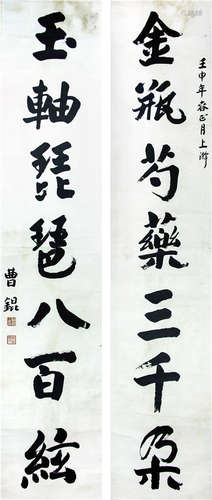 壬申年春正月上澣
金瓶芍藥三千朵
玉軸琵琶八百絃
曹錕